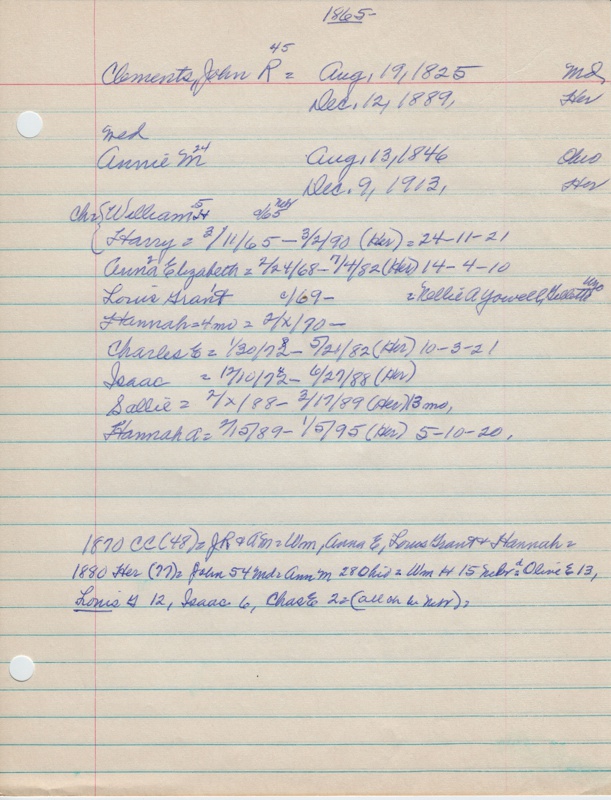 1865-
45
Clements, John R = Aug, 19, 1825 Md,
Dec, 12, 1889, Her
med
24
Annie M Aug, 13, 1846 Ohio
Dec. 9, 1913, Her
Ch { William H c/65 Neb
Harry = 3/11/65 - 3/2/90 (Her) = 24-11-21
Anna Elizabeth = 2/24/68 - 7/4/82 (Her) 14-4-10
Louis Grant c/69 - = Nellie A Yowell, Gillette Wyo
Hannah = 4 mo = 2/x/70 -
Charles E = 1/30/72 - 5/21/82 (Her) 10-3-21
Isaac = 12/10/72 - 6/27/88 (Her)
Sallie = 2/x/88 - 3/17/89 (Her) 13 mo,
Hannah A = 2/15/89 - 1/5/95 (Her) 5-10-20,
1870 CC (48) = JR & AM = Wm, Anna E, Louis Grant & Hannah =
1880 Her (77) = John 54 Md = Ann M 28 Ohio = Wm H 15 Nebr = Olive E 13,
Louis G 12, Isaac 6, Chas E 2 = (all ch in Nebr) =